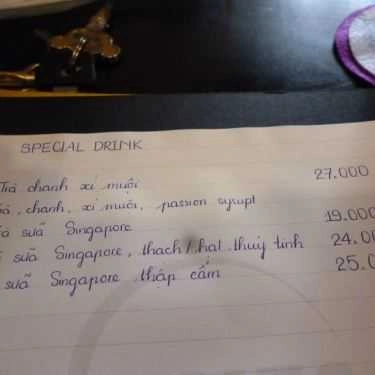 SPECIAL DRINK
Trà chanh xí muội 27.000
, chanh, xí muội, passion syrupt
sữa Singapore 19.000
sữa Singapore, thạch/hạt thuỷ tinh 24.0
sữa Singapore thập cẩm 25.0